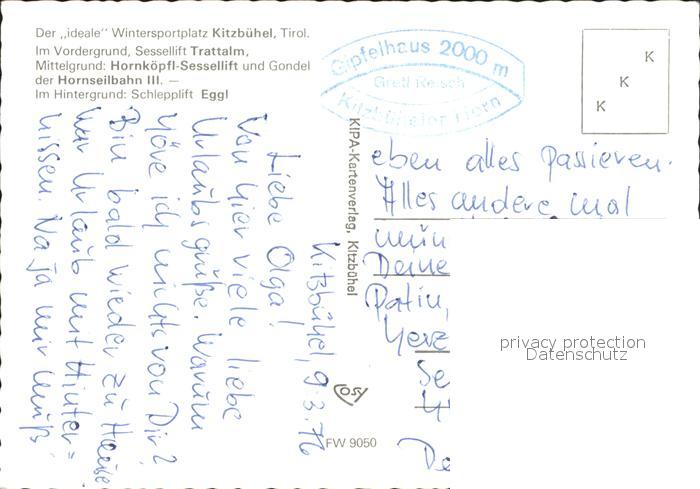 Der „ideale“ Wintersportplatz Kitzbühel, Tirol.
Im Vordergrund, Sessellift Trattalm,
Mittelgrund: Hornköpfl-Sessellift und Gondel
der Hornseilbahn III. —
Im Hintergrund: Schlepplift Eggl
Gipfelhaus 2000 m
Gretl Reisch
Kitzbüheler Horn
K
K
K
KIPA-Kartenverlag, Kitzbühel
cosy
FW 9050
Kitzbühel, 9.3.76
Liebe Olga!
Von hier viele liebe
Urlaubsgrüße. Warum
höre ich nichts von Dir?
Bin bald wieder zu Hause
war Urlaub mit Hinder=
nissen. Na ja mir muß
eben alles passieren.
Alles andere mal
mün
Deine
Patin,
Herz
Se
De
privacy protection
Datenschutz